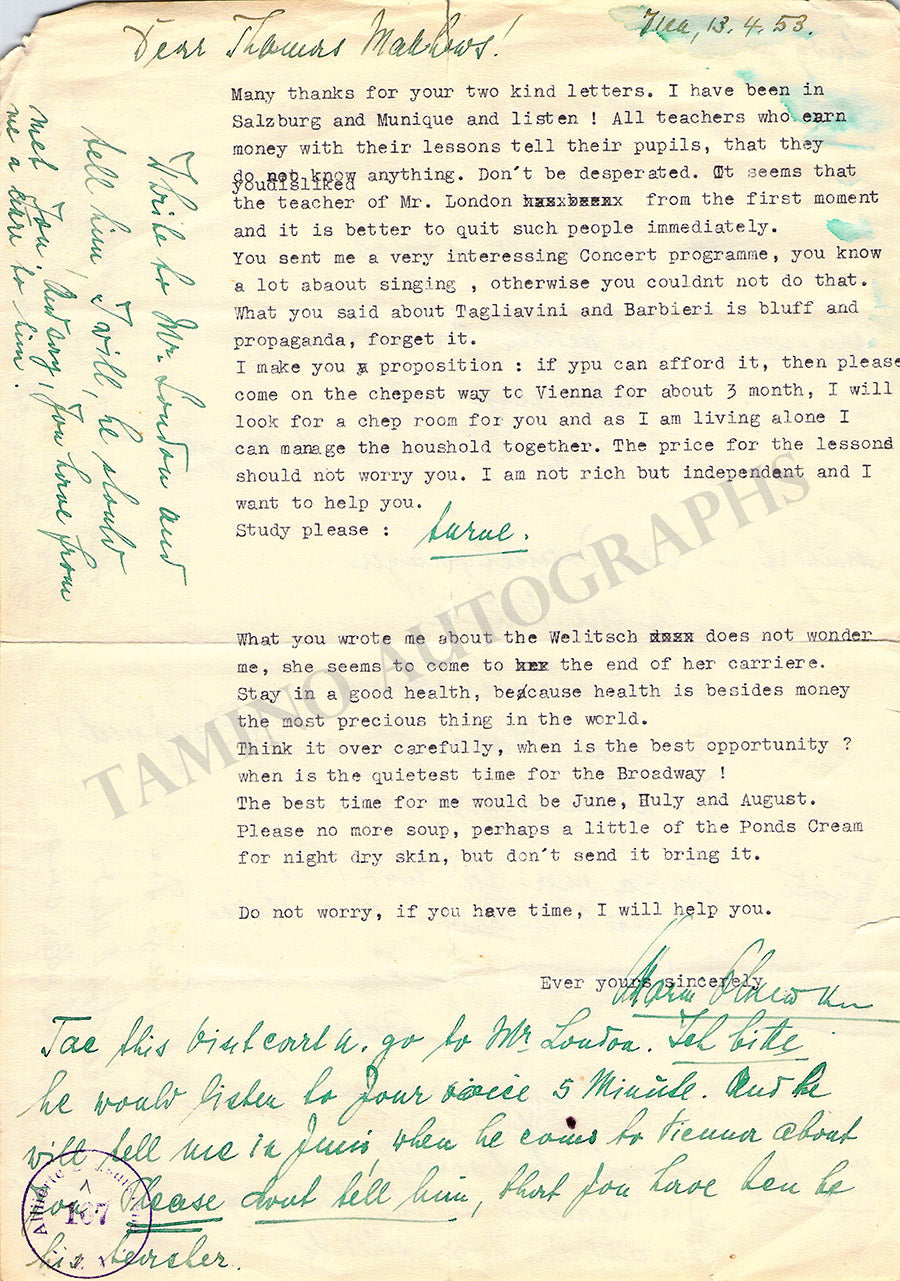 Dear Thomas Mathews!
13.4.53.
Many thanks for your two kind letters. I have been in
Salzburg and Munique and listen ! All teachers who earn
money with their lessons tell their pupils, that they
do not know anything. Don't be desperated. It seems that
youdisliked
the teacher of Mr. London from the first moment
and it is better to quit such people immediately.
You sent me a very interessing Concert programme, you know
a lot abaout singing , otherwise you couldnt not do that.
What you said about Tagliavini and Barbieri is bluff and
propaganda, forget it.
I make you a proposition : if ypu can afford it, then please
come on the chepest way to Vienna for about 3 month, I will
look for a chep room for you and as I am living alone I
can manage the houshold together. The price for the lessons
should not worry you. I am not rich but independent and I
want to help you.
Study please :
What you wrote me about the Welitsch does not wonder
me, she seems to come to the end of her carriere.
Stay in a good health, because health is besides money
the most precious thing in the world.
Think it over carefully, when is the best opportunity ?
when is the quietest time for the Broadway !
The best time for me would be June, Huly and August.
Please no more soup, perhaps a little of the Ponds Cream
for night dry skin, but don't send it bring it.
Do not worry, if you have time, I will help you.
Ever yours sincerely
Tae this Visitcart a. go to Mr. London. Ich bitte
he would listen to Jour voice 5 Minute. And he
will tell me in Juni, when he coms to Vienna about
Jou. Please dont tell him, that Jou have ben be
his teacher.
Write to Mr. London and
tell him, I will, he should
met Jou. And say, Jou have from
me a care to him.
Alliierte
167
TAMINO AUTOGRAPHS